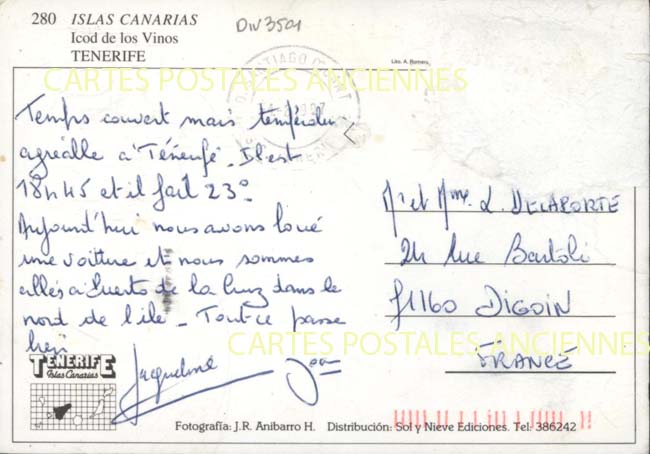 280 ISLAS CANARIAS
Icod de los Vinos
TENERIFE
DIV3501
Lito. A. Romero
SANTIAGO
CARTES POSTALES ANCIENNES
Temps couvert mais température
agréable à Ténérifé. Il est
18h45 et il fait 23°.
Aujourd'hui nous avons loué
une voiture et nous sommes
allés à Puerto de la Cruz dans le
nord de l'île - Tout ce passe
bien
Jacqueline Jean
Mr et Mme L. DELAPORTE
24 Rue Bartoli
71160 DIGOIN
FRANCE
CARTES POSTALES ANCIENNES
TENERIFE
Islas Canarias
Fotografía: J.R. Anibarro H. Distribución: Sol y Nieve Ediciones. Tel: 386242